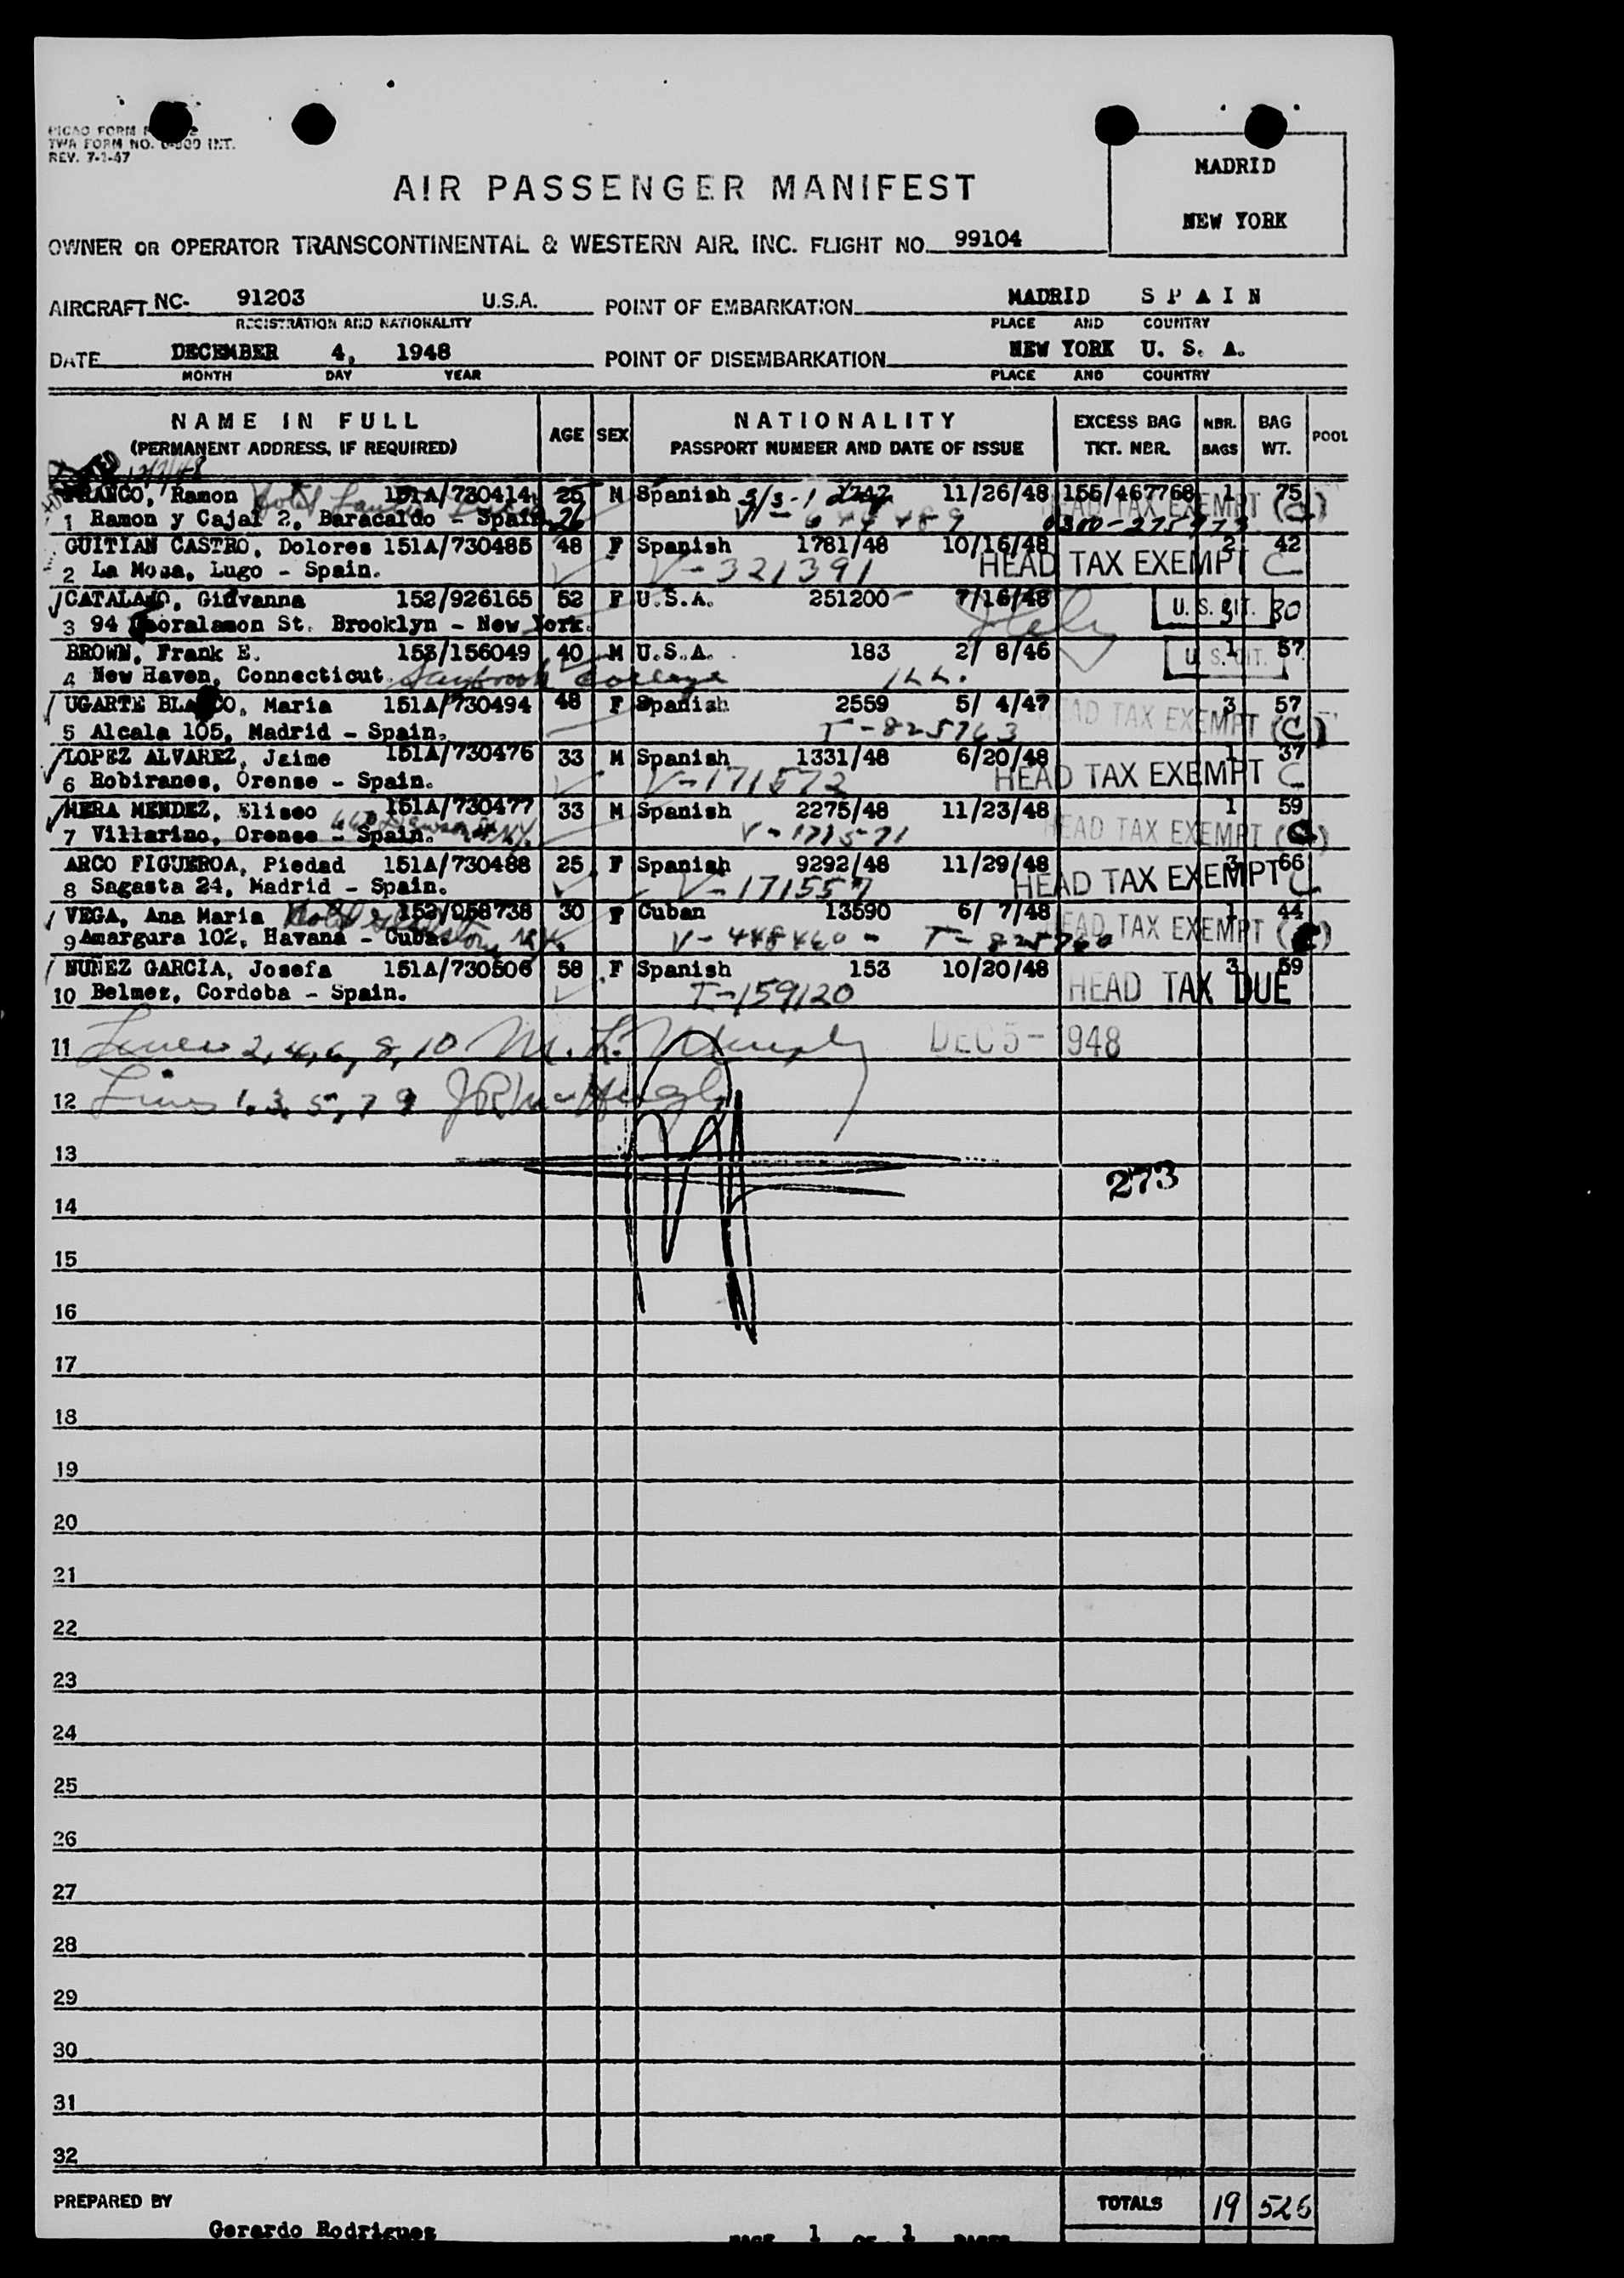 PICAO FORM
TWA FORM NO. INT.
REV. 7-1-47
MADRID
NEW YORK
AIR PASSENGER MANIFEST
OWNER OR OPERATOR TRANSCONTINENTAL & WESTERN AIR. INC. FLIGHT NO. 99104
AIRCRAFT NC- 91203 U.S.A. POINT OF EMBARKATION MADRID SPAIN
REGISTRATION AND NATIONALITY PLACE AND COUNTRY
DATE DECEMBER 4, 1948 POINT OF DISEMBARKATION NEW YORK U. S. A.
MONTH DAY YEAR PLACE AND COUNTRY
NAME IN FULL AGE SEX NATIONALITY EXCESS BAG NBR. BAG POOL
(PERMANENT ADDRESS, IF REQUIRED) PASSPORT NUMBER AND DATE OF ISSUE TKT. NBR. BAGS WT.
FRANCO, Ramon Hotel 151A/730414 25 M Spanish 11/26/48 155/467768 1 75
HEAD TAX EXEMPT (C)
1 Ramon y Cajal 2, Baracaldo - Spain. 26
GUITIAN CASTRO, Dolores 151A/730485 48 F Spanish 1781/48 10/16/48 2 42
2 La Mosa, Lugo - Spain. V-321391 HEAD TAX EXEMPT C
CATALANO, Giovanna 152/926165 52 F U.S.A. 251200 7/16/48 U. S. CIT. 30
3 94 St. Brooklyn - New York. Italy
BROWN, Frank E. 153/156049 40 M U.S.A. 183 2/ 8/46 1 57
4 New Haven, Connecticut. Saybrook College U. S. CIT.
UGARTE BLANCO, Maria 151A/730494 48 F Spanish 2559 5/ 4/47 3 57
5 Alcala 105, Madrid - Spain. T-825763 HEAD TAX EXEMPT (C)
LOPEZ ALVAREZ, Jaime 151A/730476 33 M Spanish 1331/48 6/20/48 1 37
6 Robiranes, Orense - Spain. V-171572 HEAD TAX EXEMPT C
MERA MENDEZ, Eliseo 151A/730477 33 M Spanish 2275/48 11/23/48 1 59
7 Villarino, Orense - Spain. V-171571 HEAD TAX EXEMPT (C)
ARCO FIGUEROA, Piedad 151A/730488 25 F Spanish 9292/48 11/29/48 3 66
8 Sagasta 24, Madrid - Spain. V-171557 HEAD TAX EXEMPT C
VEGA, Ana Maria Hotel 152/058738 30 F Cuban 13590 6/ 7/48 1 44
9 Amargura 102, Havana - Cuba. V-448460 - T-825760 HEAD TAX EXEMPT (C)
NUÑEZ GARCIA, Josefa 151A/730506 58 F Spanish 153 10/20/48 3 59
10 Belmez, Cordoba - Spain. T-159120 HEAD TAX DUE
11 Lines 2, 4, 6, 8, 10 M. L. Murphy DEC 5-1948
12 Lines 1, 3, 5, 7 9
13
273
14
15
16
17
18
19
20
21
22
23
24
25
26
27
28
29
30
31
32
PREPARED BY TOTALS 19 526
Gerardo Rodriguez PAGE 1 OF 1 PAGES